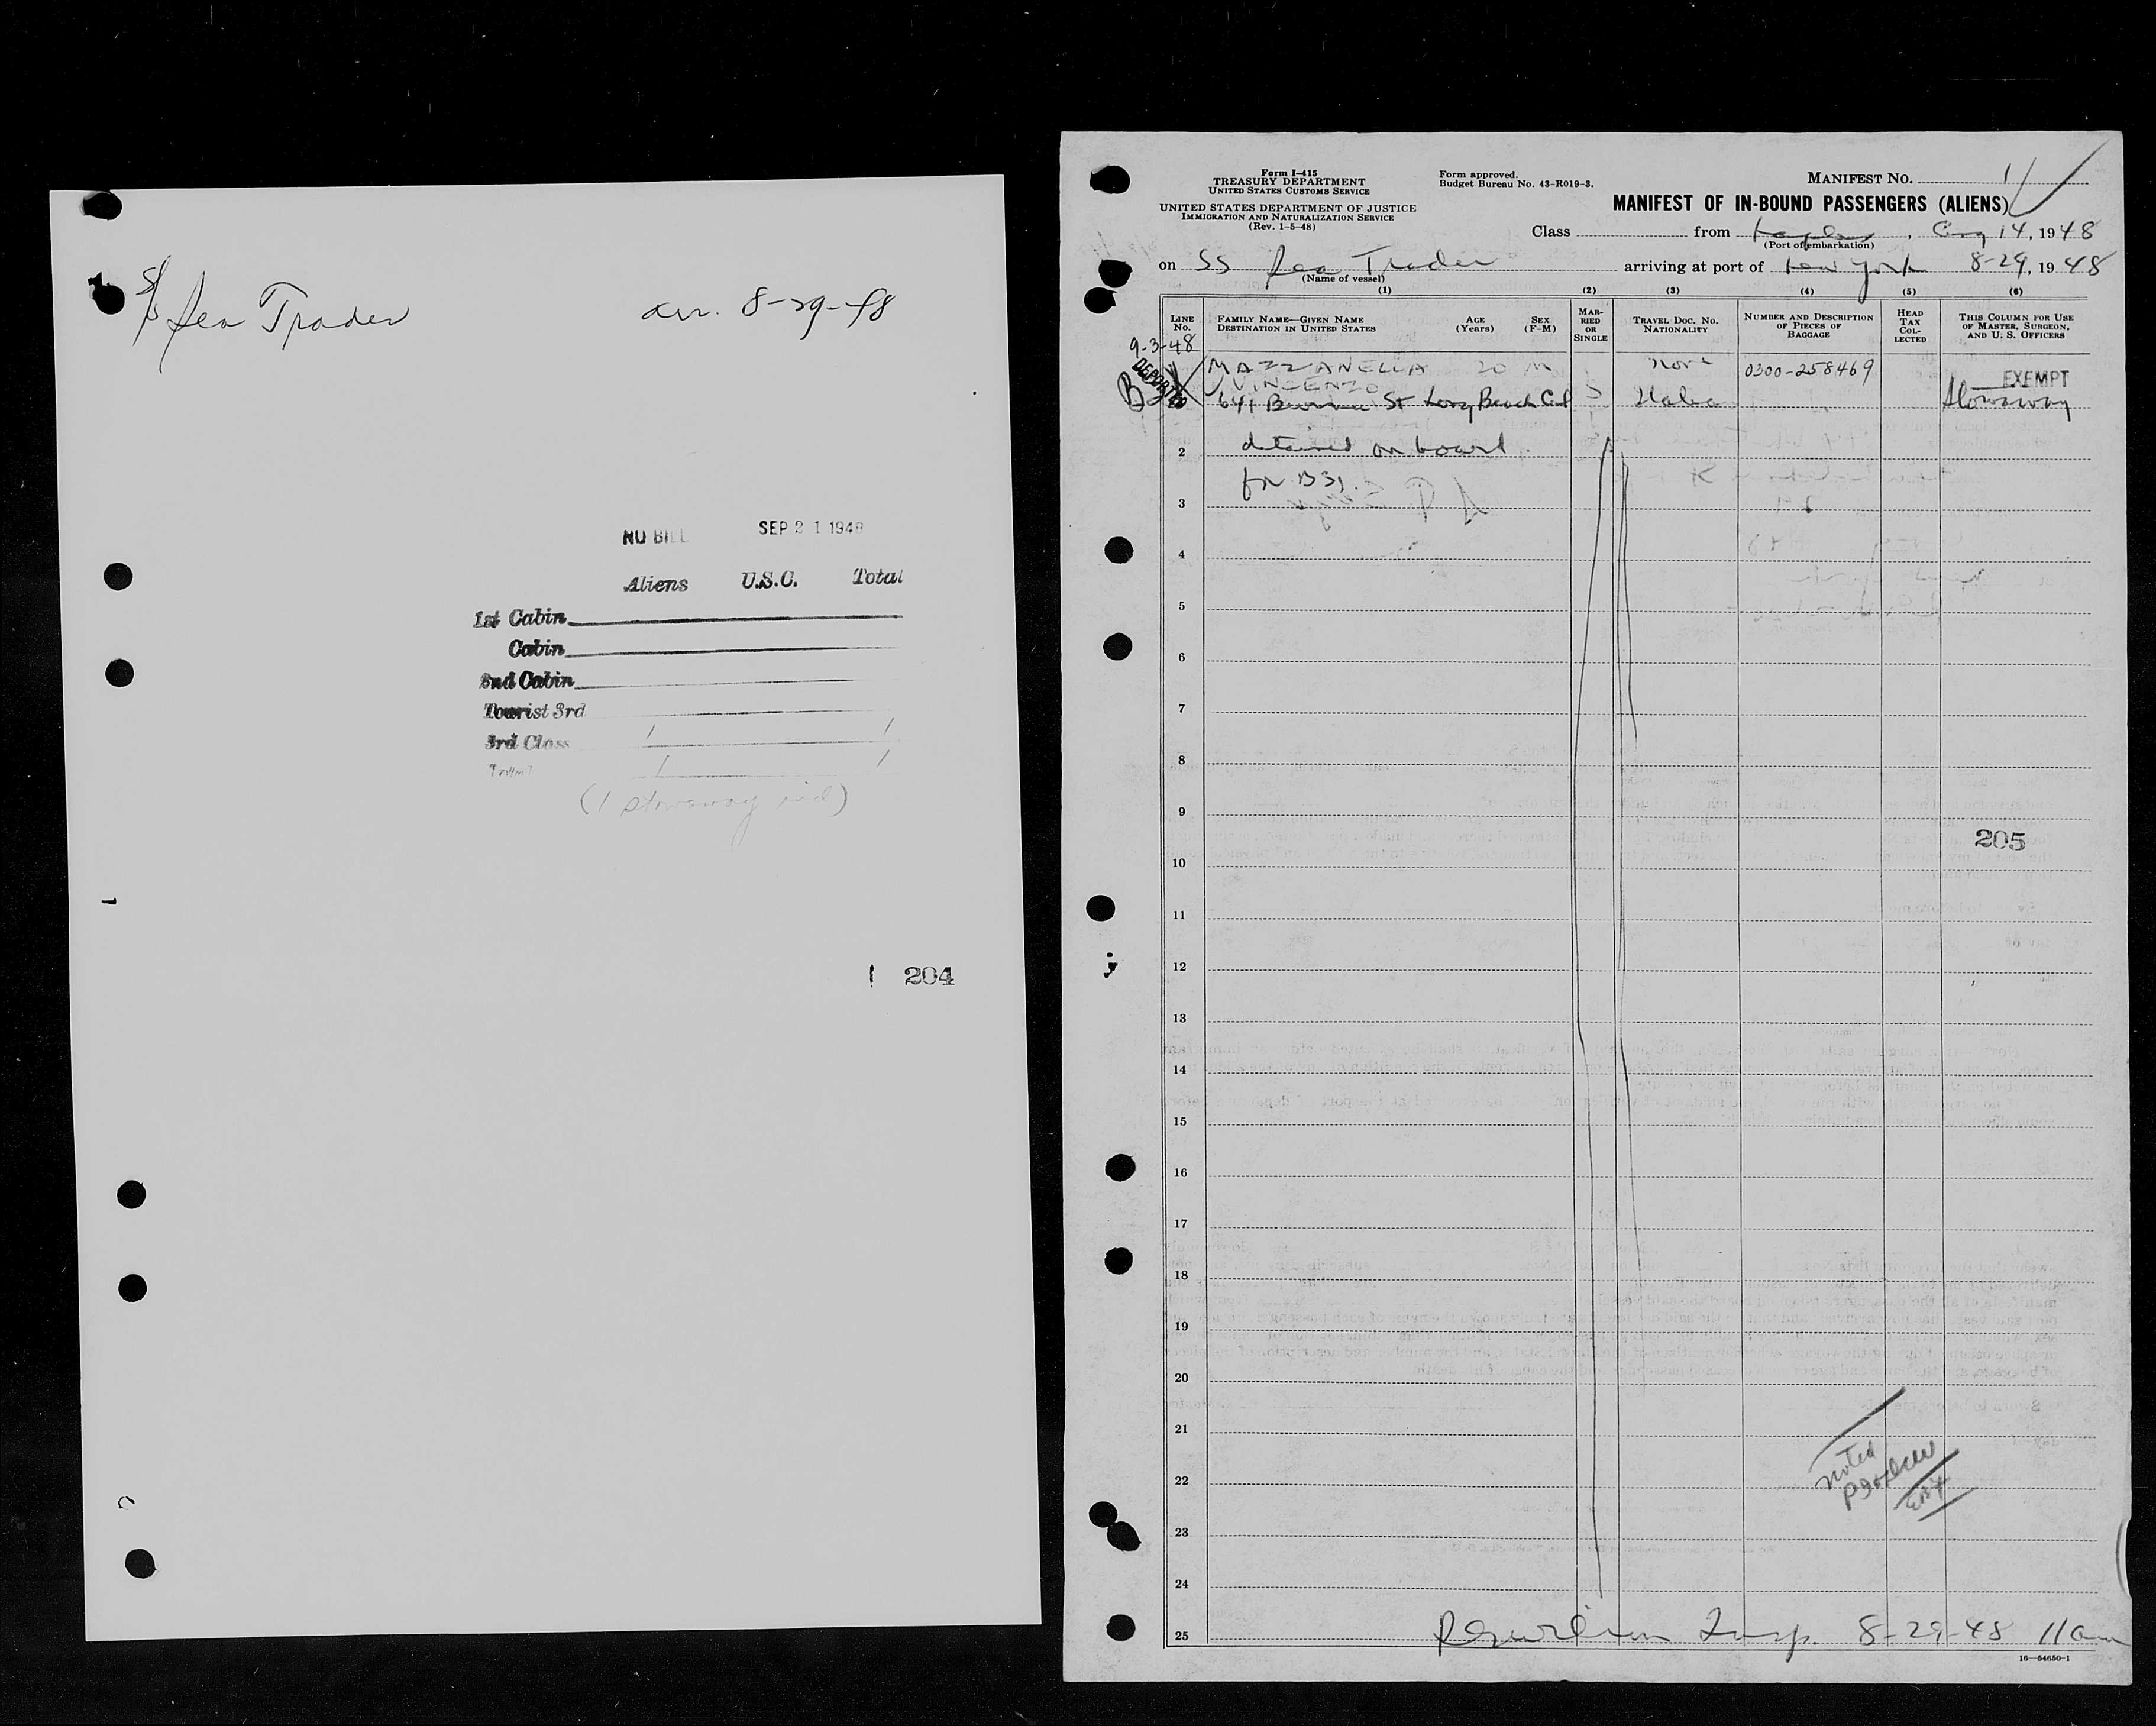 S/S Sea Trader arr. 8-29-48
NO BILL SEP 21 1948
Aliens U.S.C. Total
1st Cabin
Cabin
2nd Cabin
Tourist 3rd
3rd Class 1 1
1 1
(1 stowaway incl)
204
Form I-415
TREASURY DEPARTMENT
UNITED STATES CUSTOMS SERVICE
UNITED STATES DEPARTMENT OF JUSTICE
IMMIGRATION AND NATURALIZATION SERVICE
(Rev. 1-5-48)
Form approved.
Budget Bureau No. 43-R019-3.
MANIFEST NO. 1
MANIFEST OF IN-BOUND PASSENGERS (ALIENS)
Class from Naples, Aug 14, 1948
(Port of embarkation)
on SS Sea Trader arriving at port of New York 8-29, 1948
(Name of vessel)
(1) (2) (3) (4) (5) (6)
LINE No.
FAMILY NAME—GIVEN NAME
DESTINATION IN UNITED STATES
AGE (Years)
SEX (F-M)
MARRIED OR SINGLE
TRAVEL DOC. NO.
NATIONALITY
NUMBER AND DESCRIPTION OF PIECES OF BAGGAGE
HEAD TAX COLLECTED
THIS COLUMN FOR USE OF MASTER, SURGEON, AND U. S. OFFICERS
9-3-48
DEPORTED
MAZZANELLA 20 M None 0300-258469 EXEMPT
VINCENZO
641 St Long Beach Cal S Italian Stowaway
2 detained on board
for BSI.
3
4
5
6
7
8
9
205
10
11
12
13
14
15
16
17
18
19
20
21
noted
22
23
24
25 Insp. 8-29-48 11am
16—54650-1